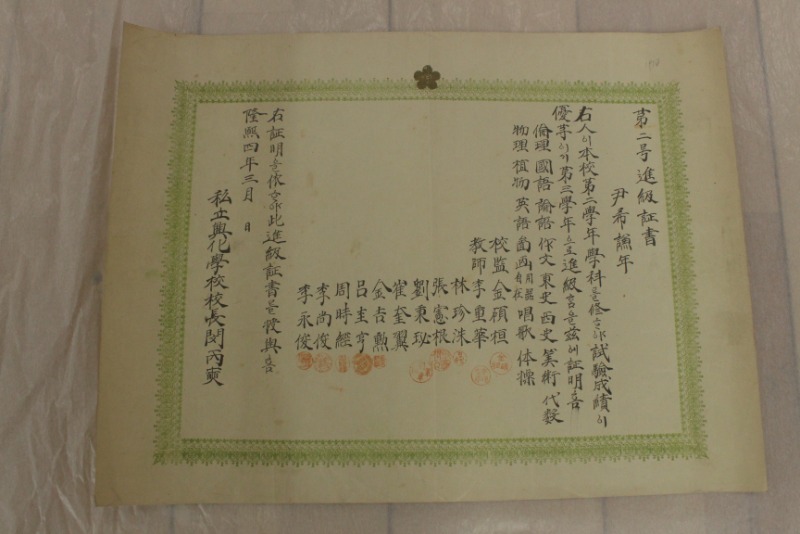 第二号進級証書
尹希謙 年
右人이本校第二學年學科를修하야試驗成績이
優等이기第三學年으로進級함을玆에証明홈
倫理 國語 論語 作文 東史 西史 算術 代数
物理 植物 英語 畵 用器 自在 唱歌 体操
校監 金碩桓
教師 李重華
林珍洙
張憲根
劉秉珌
崔奎翼
金吉勲
呂圭亨
周時經
李尚俊
李永俊
右証明을依하야此進級証書를發與홈
隆熙四年三月 日
私立興化學校校長閔丙奭